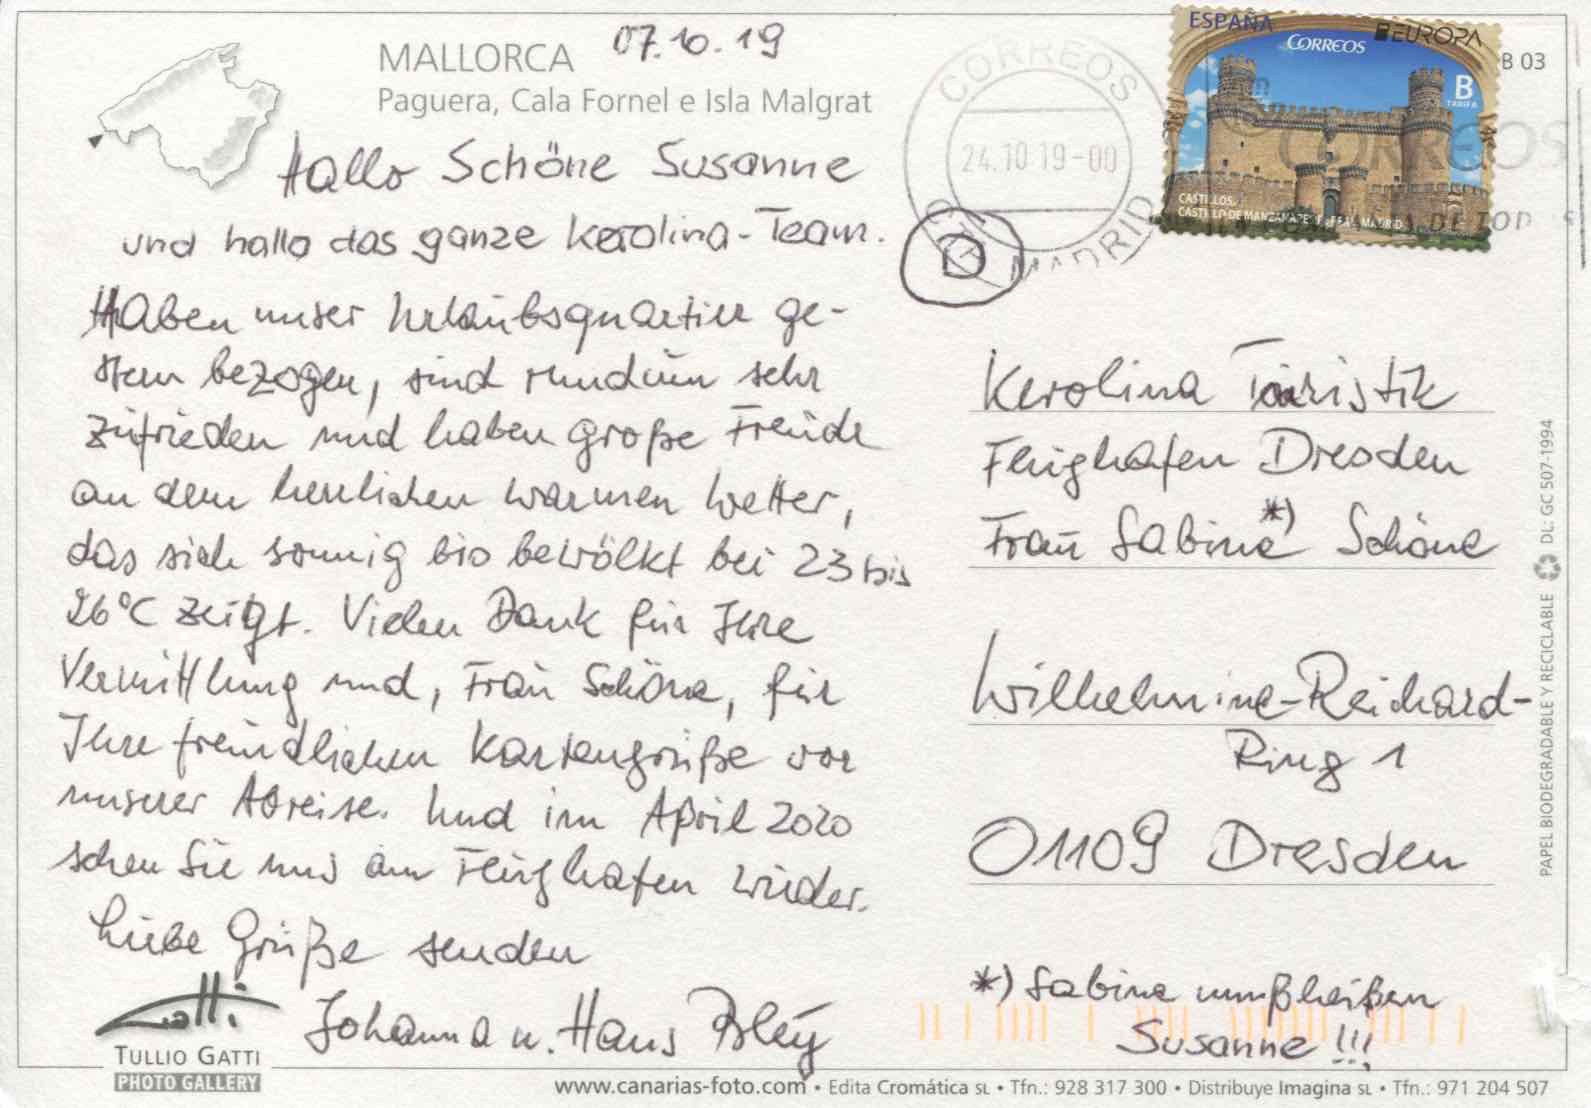 MALLORCA 07.10.19
Paguera, Cala Fornel e Isla Malgrat
Hallo Schöne Susanne
und hallo das ganze Kerolina-Team.
Haben unser Urlaubsquartier ge-
stern bezogen, sind rundum sehr
zufrieden und haben große Freude
an dem herrlichen warmen Wetter,
das sich sonnig bis bewölkt bei 23 bis
26°C zeigt. Vielen Dank für Ihre
Vermittlung und, Frau Schöne, für
Ihre freundlichen Kartengrüße vor
unserer Abreise. Und im April 2020
sehen Sie uns am Flughafen wieder.
Liebe Grüße senden
Johanna u. Hans Bley
Gatti
TULLIO GATTI
PHOTO GALLERY
CORREOS
24.10.19-00
MADRID
D
ESPAÑA
EUROPA
CORREOS
B
TARIFA
CASTILLOS.
CASTILLO DE MANZANARES EL REAL. MADRID
CORREOS
B 03
Kerolina Touristik
Flughafen Dresden
Frau Sabine *) Schöne
Wilhelmine-Reichard-
Ring 1
01109 Dresden
*) Sabine muß heißen
Susanne !!!
PAPEL BIODEGRADABLE Y RECICLABLE DL: GC 507-1994
www.canarias-foto.com • Edita Cromática SL • Tfn.: 928 317 300 • Distribuye Imagina SL • Tfn.: 971 204 507